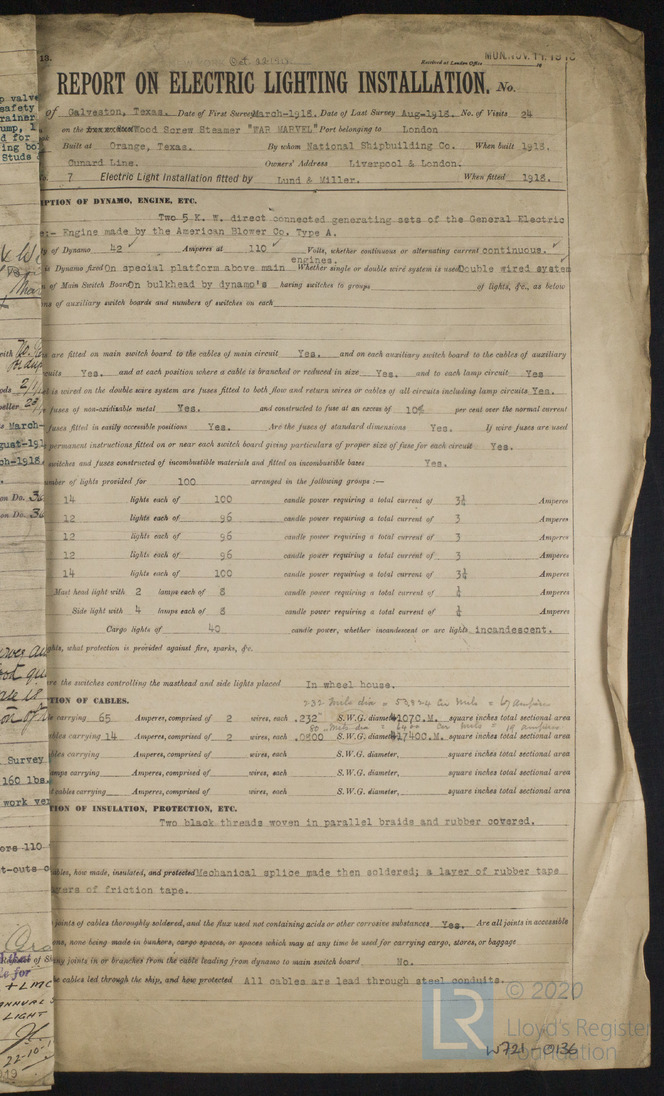 13.
Oct. 22. 1918.
Received at London Office
MON. NOV. 11. 1918
REPORT ON ELECTRIC LIGHTING INSTALLATION. No.
of Galveston, Texas. Date of First Survey March-1918. Date of Last Survey Aug-1918. No. of Visits 24
on the Wood Screw Steamer "WAR MARVEL" Port belonging to London
Built at Orange, Texas. By whom National Shipbuilding Co. When built 1918.
Cunard Line. Owners' Address Liverpool & London.
7 Electric Light Installation fitted by Lund & Miller. When fitted 1918.
IPTION OF DYNAMO, ENGINE, ETC.
Two 5 K. W. direct connected generating sets of the General Electric
e:- Engine made by the American Blower Co. Type A.
y of Dynamo 42 Amperes at 110 Volts, whether continuous or alternating current continuous.
is Dynamo fixed On special platform above main engines. Whether single or double wire system is used Double wired system
n of Main Switch Board On bulkhead by dynamo's having switches to groups of lights, &c., as below
ns of auxiliary switch boards and numbers of switches on each
are fitted on main switch board to the cables of main circuit Yes. and on each auxiliary switch board to the cables of auxiliary
cuits Yes. and at each position where a cable is branched or reduced in size Yes. and to each lamp circuit Yes
is wired on the double wire system are fuses fitted to both flow and return wires or cables of all circuits including lamp circuits Yes.
fuses of non-oxidizable metal Yes. and constructed to fuse at an excess of 10% per cent over the normal current
fuses fitted in easily accessible positions Yes. Are the fuses of standard dimensions Yes. If wire fuses are used
permanent instructions fitted on or near each switch board giving particulars of proper size of fuse for each circuit Yes.
switches and fuses constructed of incombustible materials and fitted on incombustible bases Yes.
mber of lights provided for 100 arranged in the following groups :—
14 lights each of 100 candle power requiring a total current of 3¼ Amperes
12 lights each of 96 candle power requiring a total current of 3 Amperes
12 lights each of 96 candle power requiring a total current of 3 Amperes
12 lights each of 96 candle power requiring a total current of 3 Amperes
14 lights each of 100 candle power requiring a total current of 3¼ Amperes
Mast head light with 2 lamps each of 8 candle power requiring a total current of ¼ Amperes
Side light with 4 lamps each of 8 candle power requiring a total current of ¼ Amperes
Cargo lights of 40 candle power, whether incandescent or arc lights incandescent.
ghts, what protection is provided against fire, sparks, &c.
ere the switches controlling the masthead and side lights placed In wheel house.
TION OF CABLES.
carrying 65 Amperes, comprised of 2 wires, each .232 S.W.G. diameter 41070.M. square inches total sectional area
bles carrying 14 Amperes, comprised of 2 wires, each .0800 S.W.G. diameter 41740C.M. square inches total sectional area
bles carrying Amperes, comprised of wires, each S.W.G. diameter, square inches total sectional area
amps carrying Amperes, comprised of wires, each S.W.G. diameter, square inches total sectional area
cables carrying Amperes, comprised of wires, each S.W.G. diameter, square inches total sectional area
TION OF INSULATION, PROTECTION, ETC.
Two black threads woven in parallel braids and rubber covered.
ables, how made, insulated, and protected Mechanical splice made then soldered; a layer of rubber tape
ayers of friction tape.
joints of cables thoroughly soldered, and the flux used not containing acids or other corrosive substances Yes. Are all joints in accessible
ons, none being made in bunkers, cargo spaces, or spaces which may at any time be used for carrying cargo, stores, or baggage
ny joints in or branches from the cable leading from dynamo to main switch board No.
he cables led through the ship, and how protected All cables are lead through steel conduits.
LR © 2020
Lloyd's Register
Foundation
W721-0136